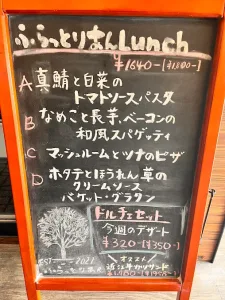 ふらっとりあんLunch
¥1640-[¥1,800-]
A 真鯖と白菜の
トマトソースパスタ
B なめこと長芋、ベーコンの
和風スパゲッティ
C マッシュルームとツナのピザ
D ホタテとほうれん草の
クリームソース
バゲット・グラタン
ドルチェセット
今週のデザート
¥320-[¥350-]
オススメ!
近江牛カツサンド
EST 2021